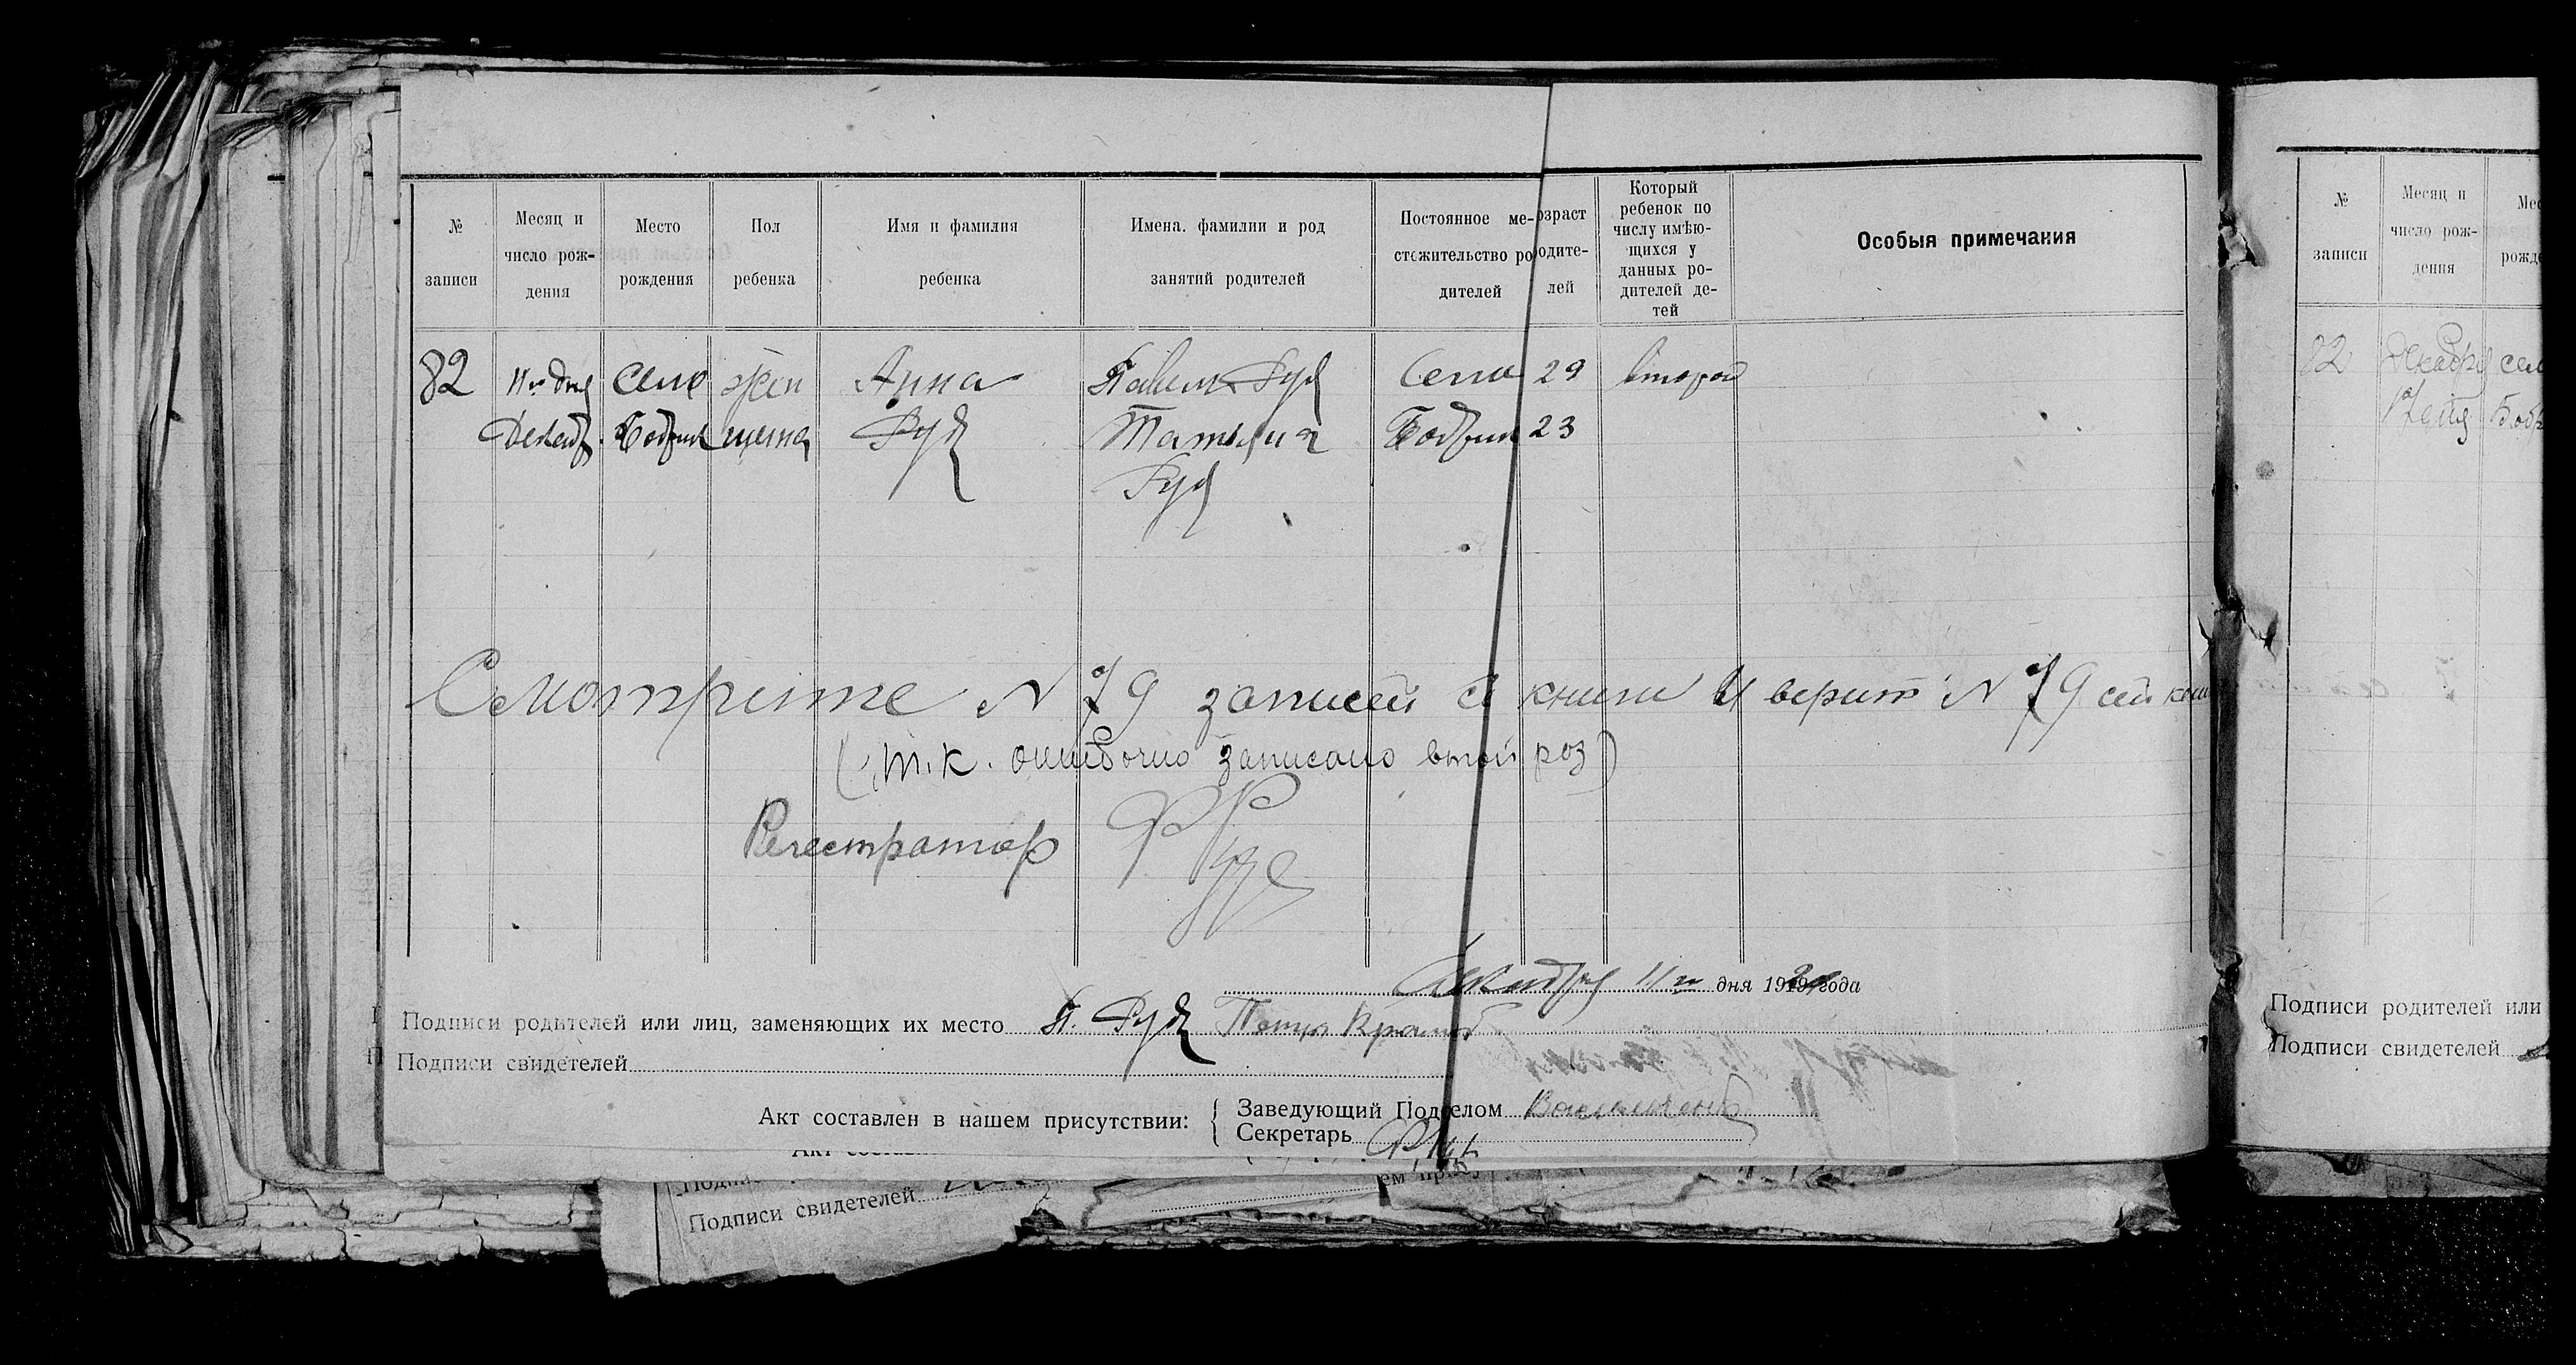 № записи
Месяц и число рождения
Место рождения
Пол ребенка
Имя и фамилия ребенка
Имена. фамилии и род занятий родителей
Постоянное ме- стожительство ро дителей
озраст одите- лей
Который ребенок по числу имѣю- щихся у данных ро- дителей де- тей
Особыя примечания
82 11го дня село жен Анна Павел Рудь Село 29 второй
Декаб. Бобрик щина Рудь Татьяна Бобрик 23
Рудь
Смотрите N 79 записей в книги И верит N 79 сей
(т.к. ошибочно записано втой роз)
Регестратор
Декабря 11го дня 1919 года
Подписи родителей или лиц, заменяющих их место П. Рудь Петр
Подписи свидетелей
Акт составлен в нашем присутствии:
Заведующий Подделом
Секретарь
Подписи свидетелей
№ записи
Месяц и число рож- дения
Мес рожде
82 Декабря сел
Бобр
Подписи родителей или
Подписи свидетелей